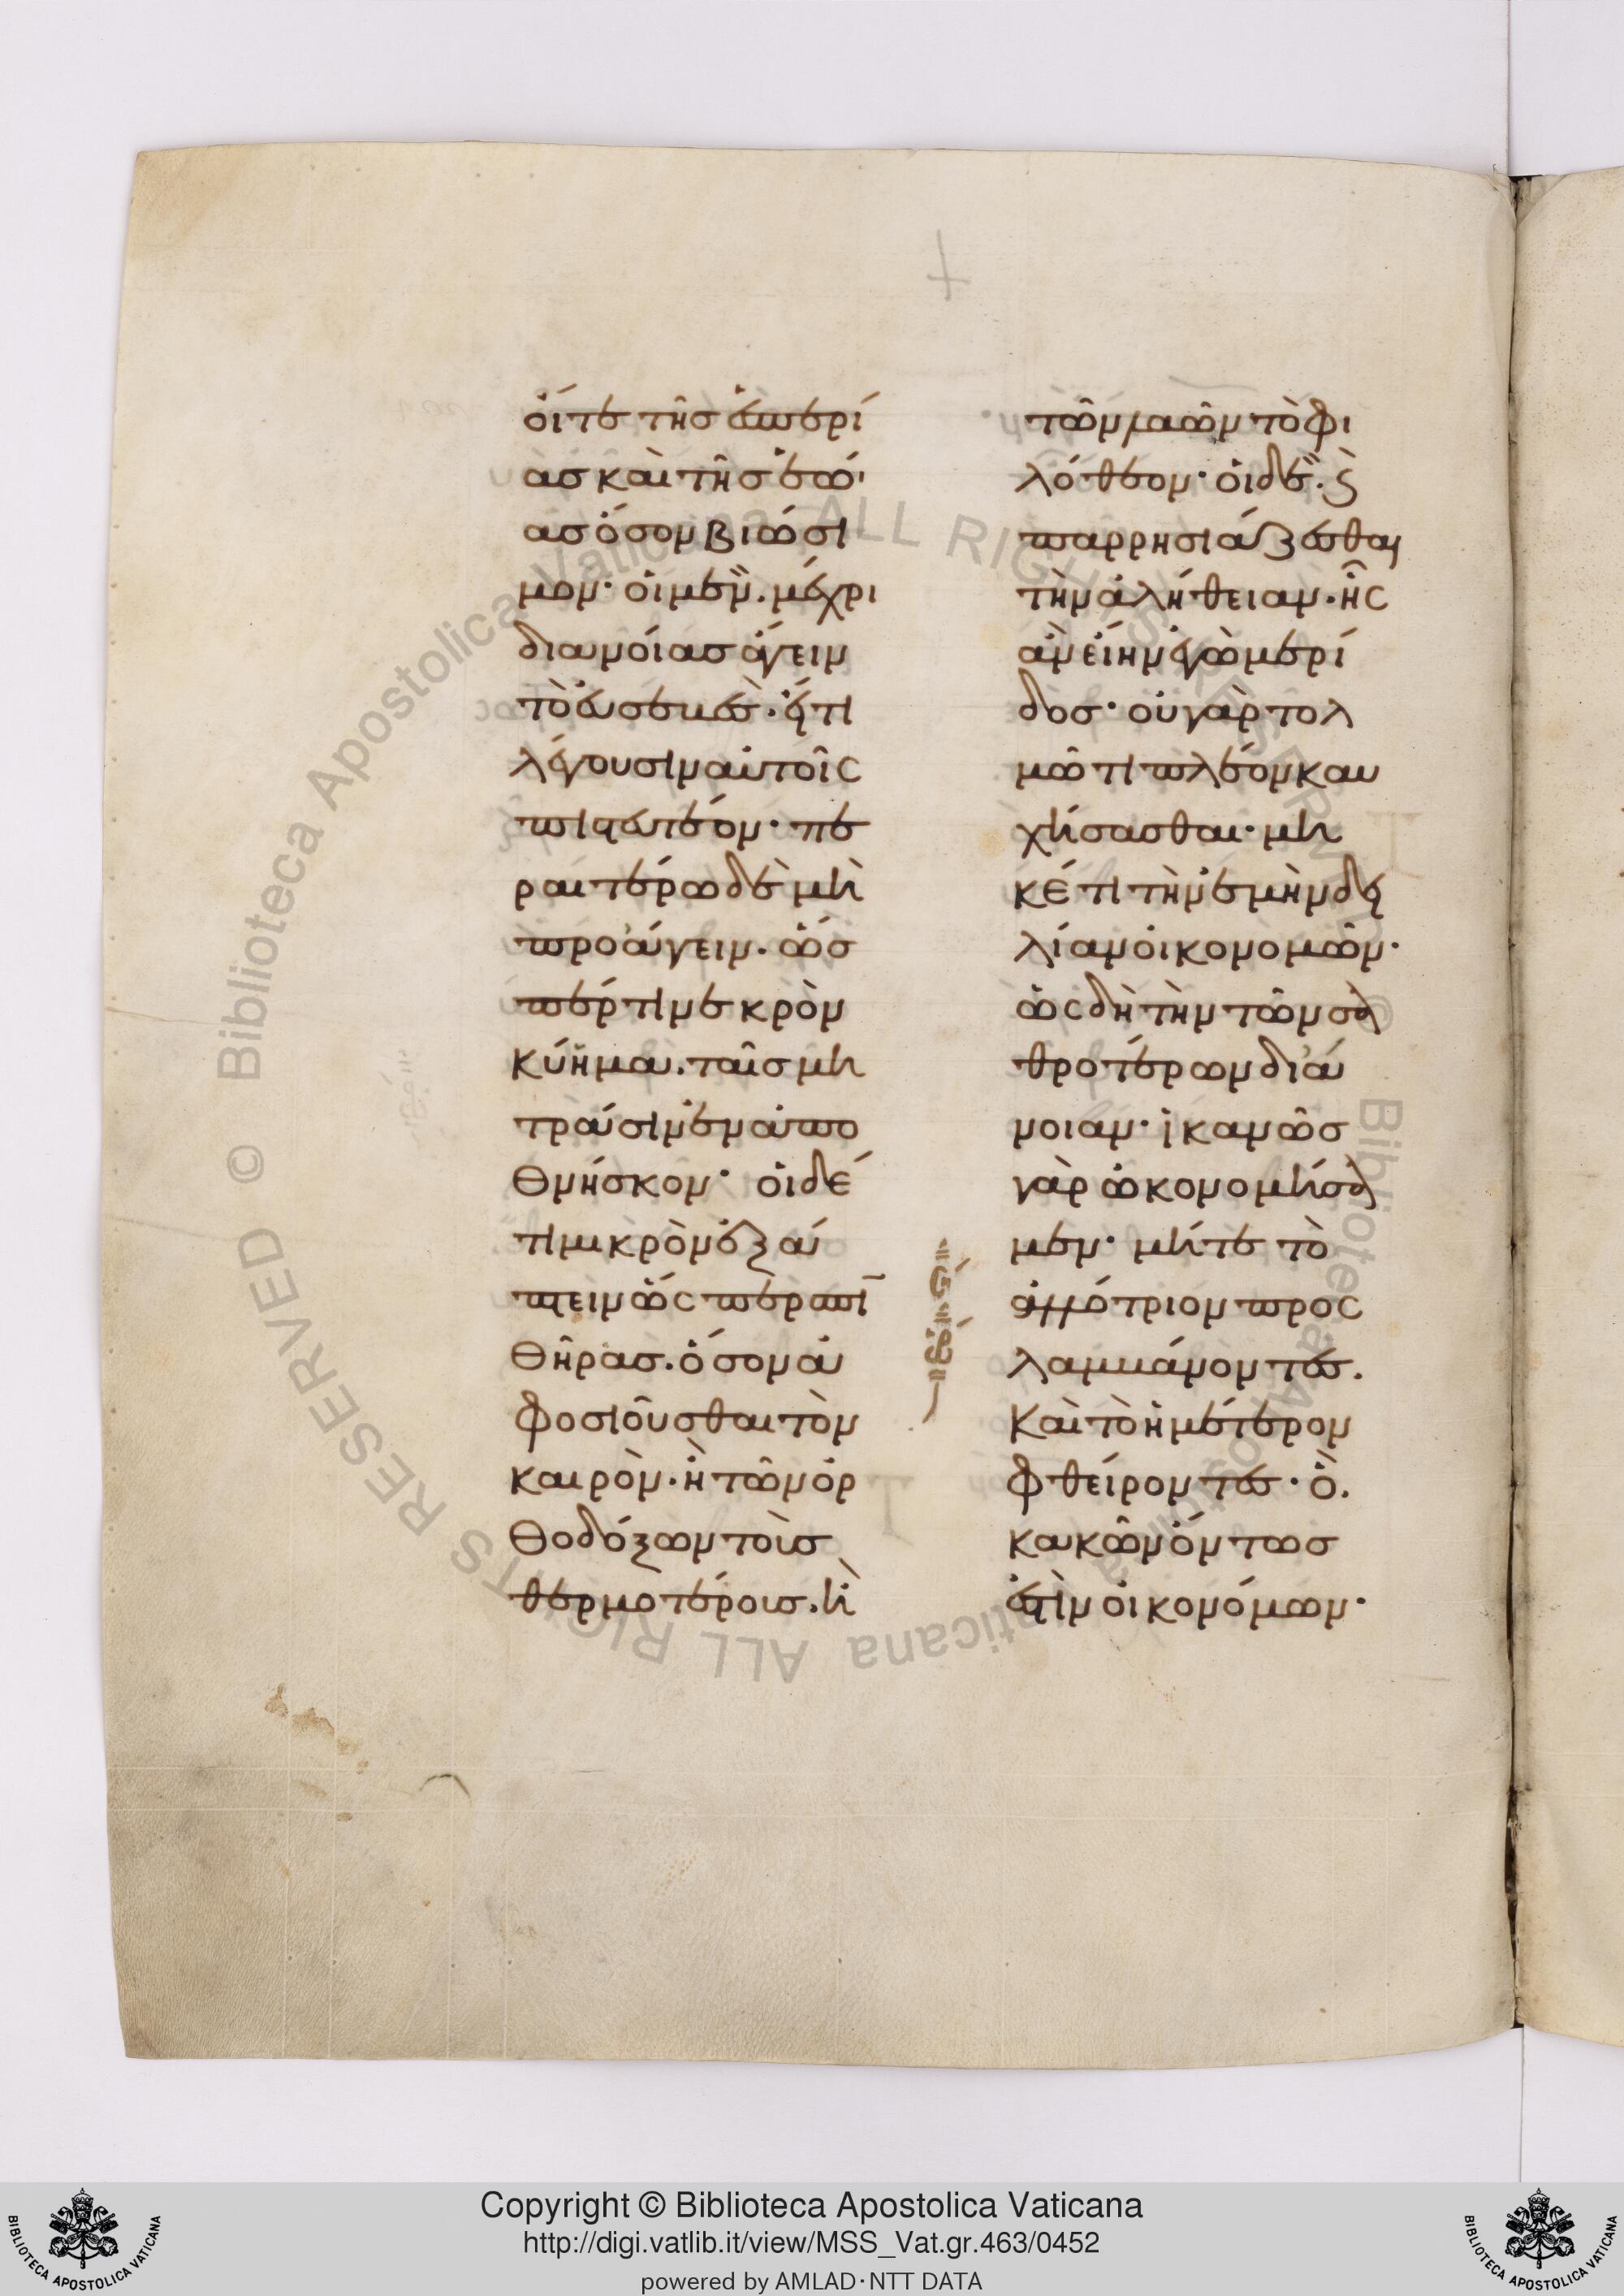 οἵτε τῆς ἀπορί
ας καὶ τῆς εὐσε
ας ὅσον βιώσι
μον· οἱ μὲν μέχρι
διανοίας ἄγειν
τὸ εὐσεβὲς· ἔτι
λέγουσιν αὐτοῖς
πιστευτέον· πε
ραιτέρω δὲ μὴ
προάγειν· ὥσ
περ τι νεκρὸν
κύημα. ταῖς μή
τραισιν ἐναπο
θνῆσκον· οἱ δέ
τι μικρὸν ἐξά
πτειν ὡς σπιν
θῆρας. ὅσον ἀ
φοσιοῦσθαι τὸν
καιρὸν. ἢ τῶν ὀρ
θοδόξων τοὺς
θερμοτέρους. ἢ
τῶν λαῶν τὸ φι
λόθεον· οἱ δὲ. καὶ
παρρησιάζεσθαι
τὴν ἀλήθειαν. ἧς
ἂν εἴην ἐγὼ μερί
δος· οὐ γὰρ τολ
μῶ τι πλέον καυ
χήσασθαι· μη
κέτι τὴν ἐμὴν δει
λίαν οἰκονομῶν·
ὡς δὴ τὴν τῶν σα
θροτέρων διά
νοιαν· ἱκανῶς
γὰρ ὠκονομήσα
μεν· μήτε τὸ
ἀλλότριον προσ
λαμβάνοντες.
Καὶ τὸ ἡμέτερον
φθείροντες· ὃ.
κακῶν ὄντως
ἐστὶν οἰκονόμων·
Copyright © Biblioteca Apostolica Vaticana
http://digi.vatlib.it/view/MSS_Vat.gr.463/0452
powered by AMLAD·NTT DATA